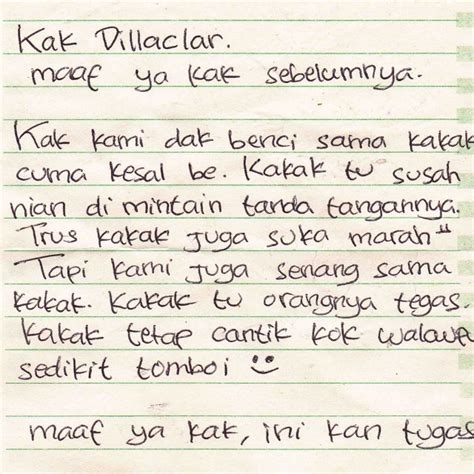 Kak Dillaclar.
maaf ya kak sebelumnya.
Kak kami dak benci sama kakak
cuma kesal be. Kakak tu susah
nian di mintain tanda tangannya.
Trus kakak juga suka marah"
Tapi kami juga senang sama
kakak. Kakak tu orangnya tegas.
kakak tetap cantik kok walaupun
sedikit tomboi
maaf ya kak, ini kan tugas